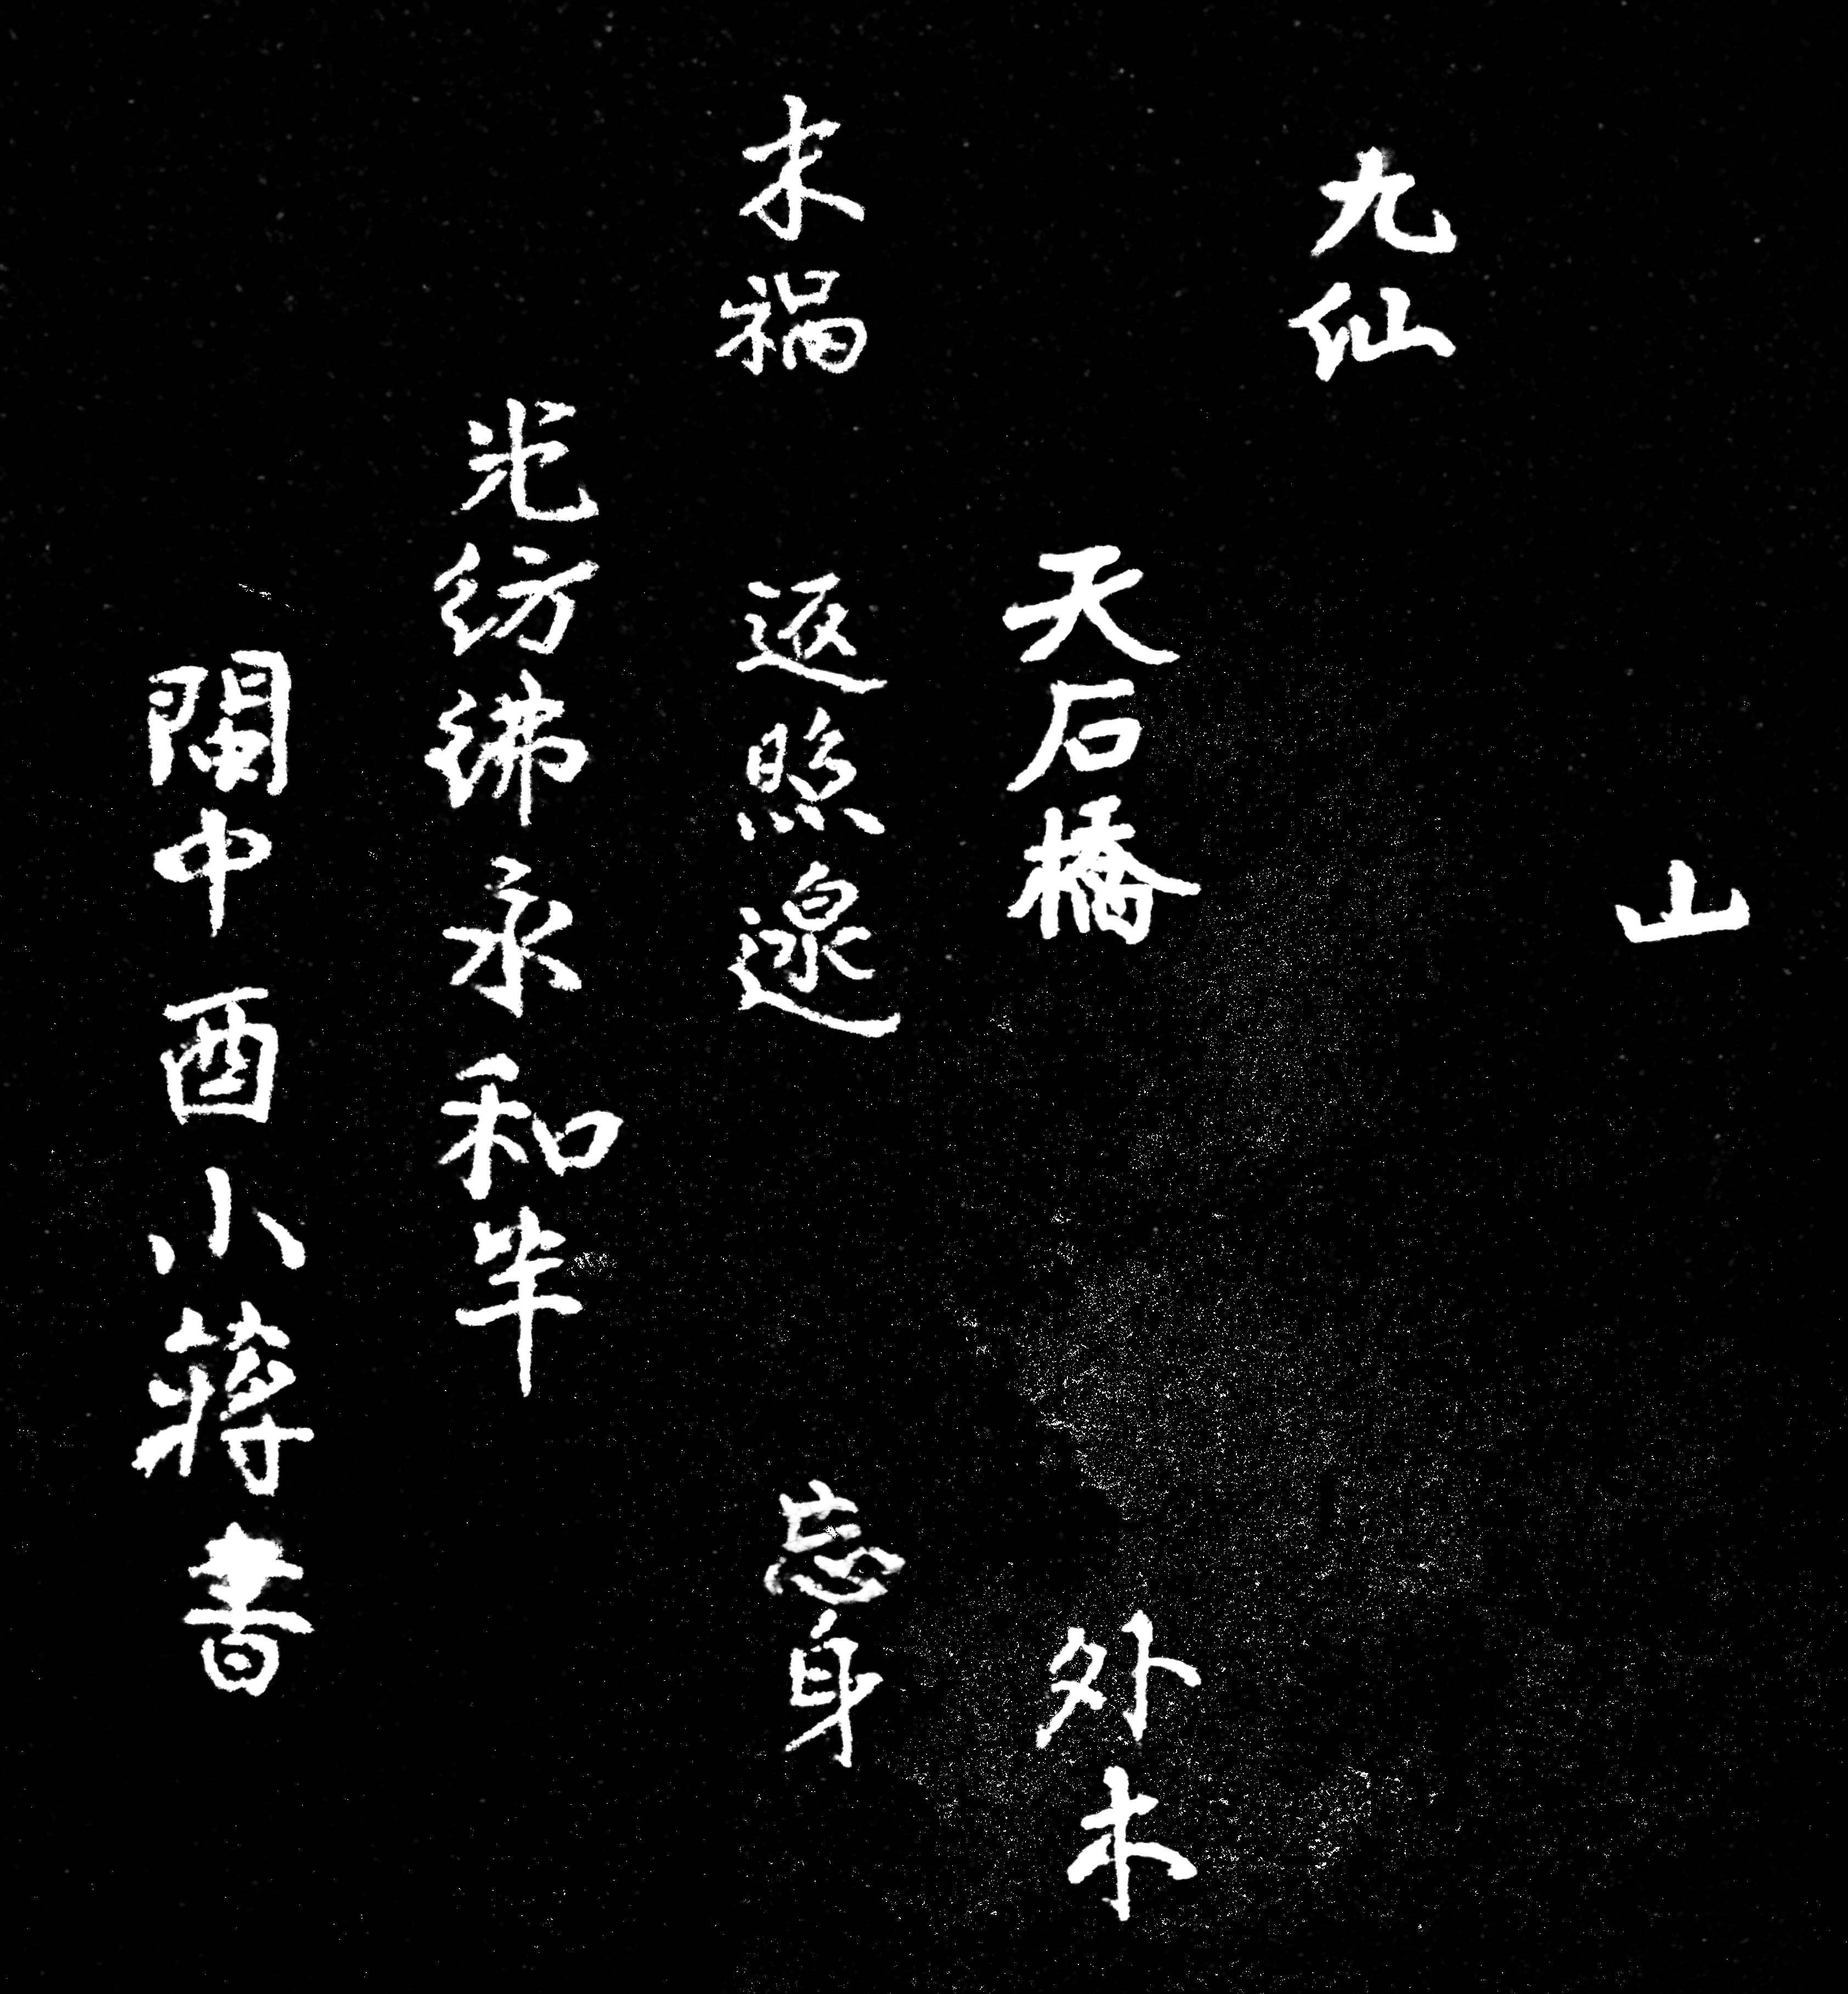 山
九仙
天石橋 外木
未禍 返照邊 忘身
光紡紼永和年
閩中酉小蔣書